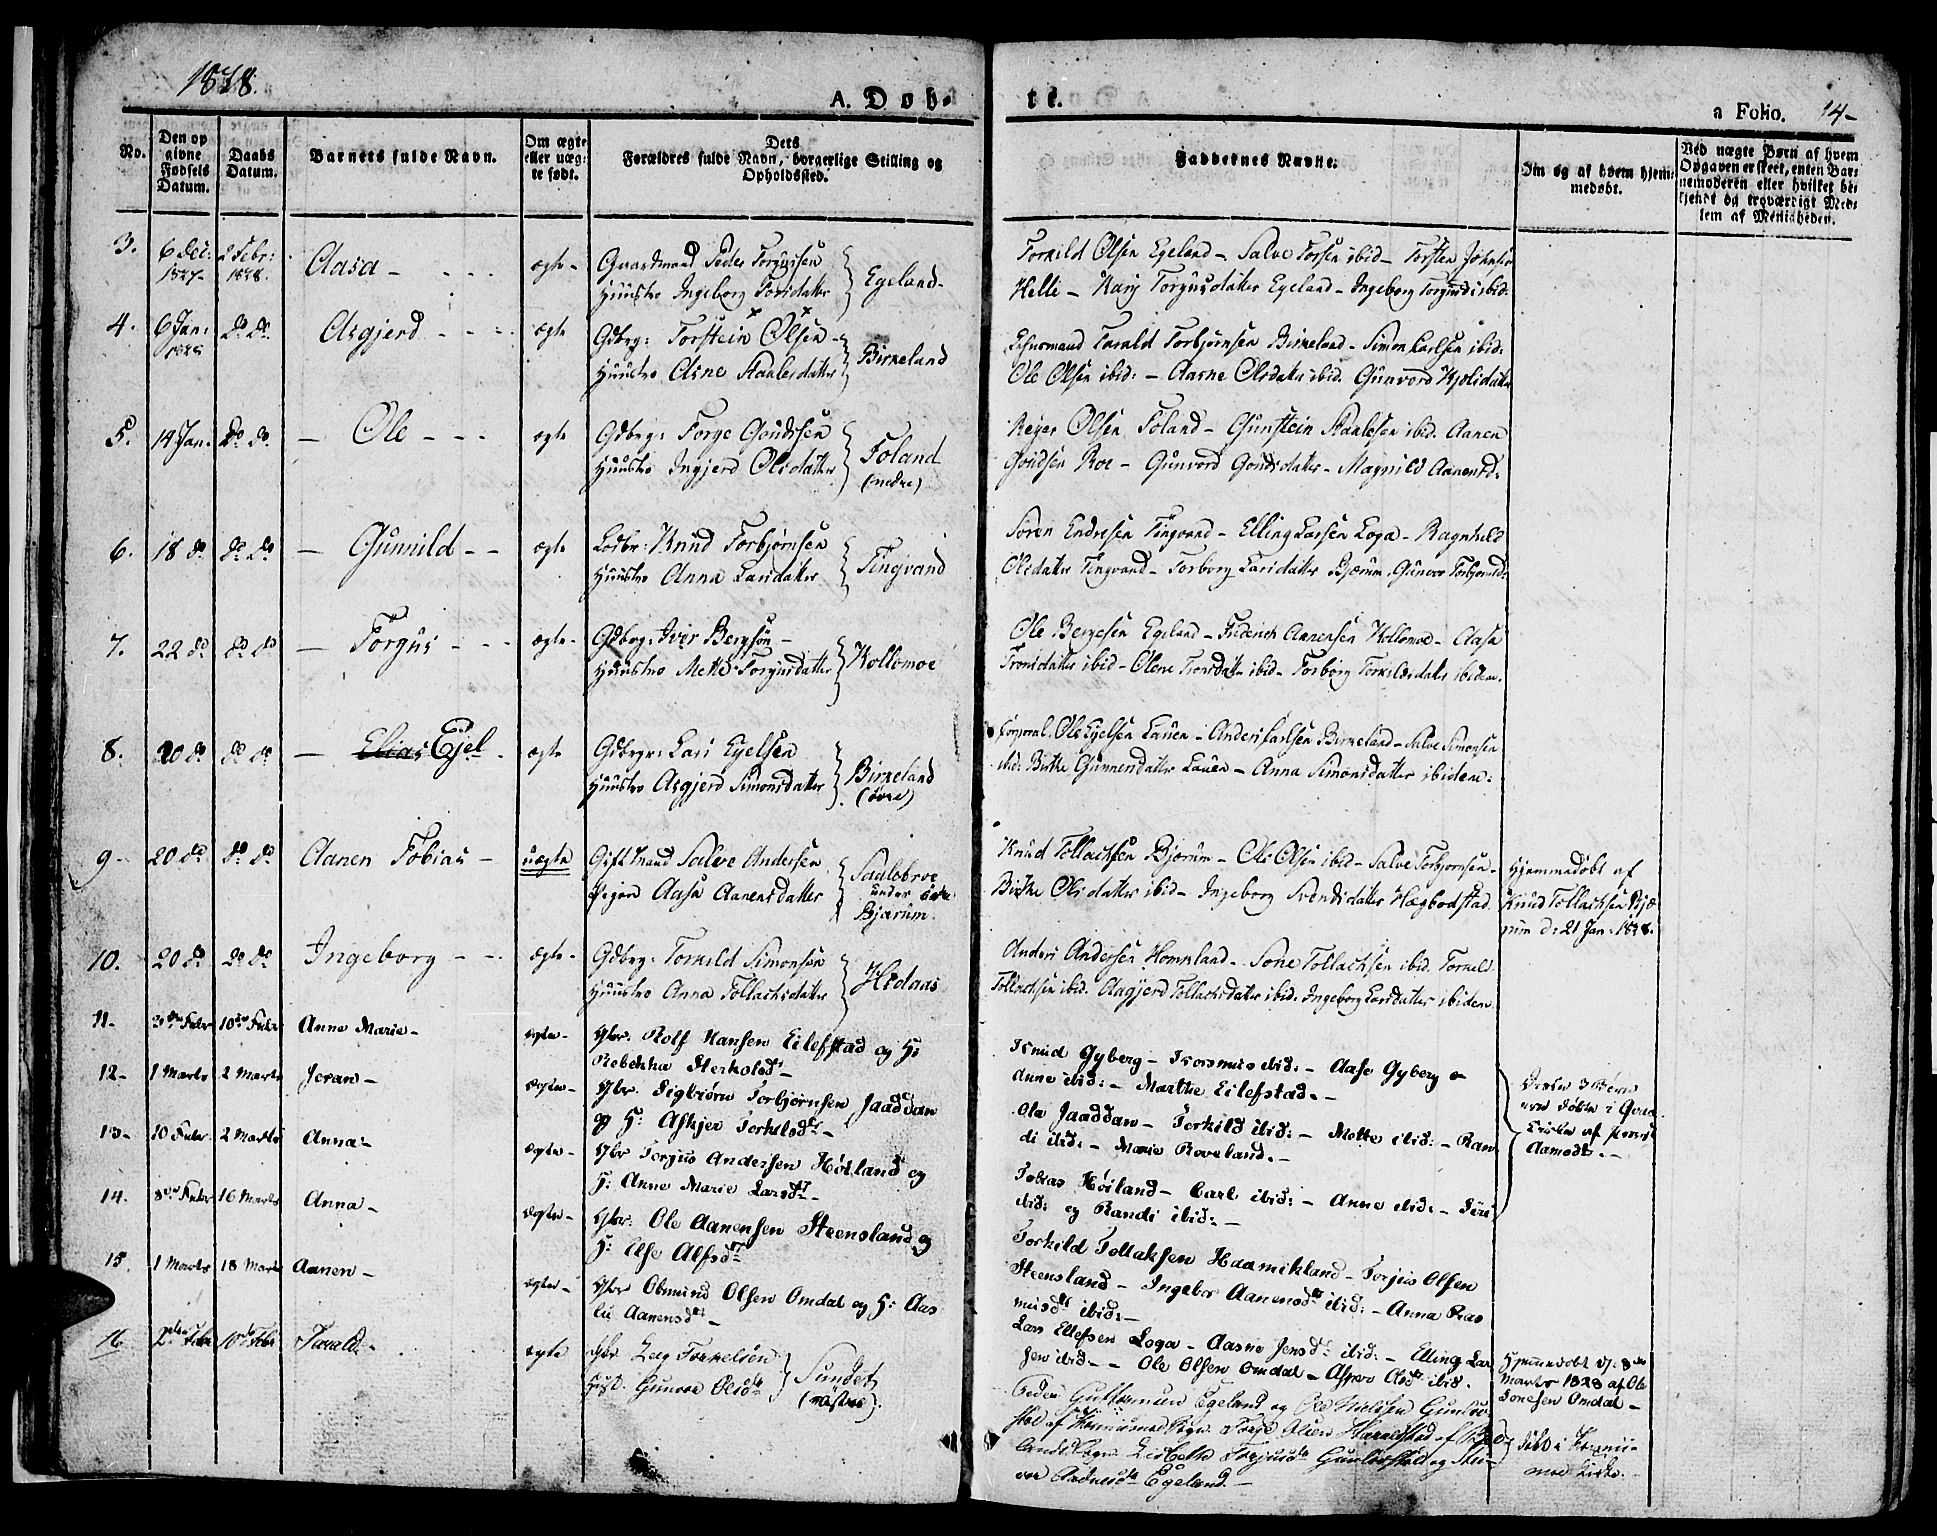 1828.
A. Døb-
te.
a Folio. 14-
No.
Den op
givne
Fødsels
Datum.
Daabs
Datum.
Barnets fulde Navn.
Om ægte
eller uæg-
te født.
Dets
Forældres fulde Navn, borgerlige Stilling og
Opholdssted.
Faddernes Navne.
Om og af hvem hjem-
medøbt.
Ved uægte Børn af hvem
Opgaven er skeet, enten Bar-
nemoderen eller hvilket be-
kjendt og troværdigt Med-
lem af Menigheden.
3. 6 Dec: 1827- 2 Febr: 1828. Aasa - ægte - Gaardmand Peder Torgussen
Huustro Ingeborg Torsdatter Egeland-
Torkild Olsen Egeland - Salve Torsen ibid - Torsten Johnsen
Helle - Karj Torgusdatter Egeland - Ingeborg Torgusd: ibid:
4. 6 Jan: 1828 do do Asgjerd - ægte Gdbrg: Torstein Olsen -
Huustro Asne Staalesdatter Birkeland
Taral&d Torbjørnsen Birkeland - Simon Carlsen ibid:
Ole Olsen ibid: - Aasne Olsdatter ibid. Gunvord
5. 14 Jan. do do. - Ole - ægte Gdbrg: Torge Goudssen
Huustro Ingjerd Olsdatter Foland
(nedre)
Reyer Olsen Foland - Gunstein Staalesen ibid. Aanen
Goudsen Roe - Gunvord Goudsdatter - Magnild Aanensd:
6. 18 do do do - Gunnild - ægte Lodbr: Knud Torbjørnsen
Huustro Anna Larsdatter Tingvand
Søren Endresen Tingvand - Elling Larsen Loga - Ragnhild
Olsdatter Tingvand - Torborg Larsdatter Bjerum. Gunvor Torbjørnsd:
7. 22 do do do - Torgus - ægte - Gdbrg: Iver Bergesøn -
Huustro Mette Torgusdatter Kollomoe
Ole Bergesen Egeland - Friderich Aanensen Kollomoe - Aasa
Tronsdatter ibid - Olene Tronsdatter ibid - Torborg Torkildsdatter ibidem.
8. 20 do do do - Elias Ejel - ægte Gdbrgr: Lars Ejelsen
Huustro Asgjerd Simonsdatter Birkeland
(øvre)
Corporal Ole Ejelsen Lauen - Anders Carlsen Birkeland - Salve Simonsen
ibid: Birthe Gunnersdatter Lauen - Anna Simonsdatter ibidem:
9- 20 do do do Aanen Tobias - uægte Gift Mand Salve Andersen
Pigen Aasa Aanensdatter Saalebroe
under
Bjærum.
Knud Tollachsen Bjærum - Ole Olsen ibid - Salve Torbjørnsen -
Birthe Olsdatter ibid - Ingeborg Svendsdatter Hægbostad.
Hjemmedøbt af
Knud Tollachsen Bjæ-
rum d: 21 Jan: 1828.
10. 20 do do do Ingeborg - ægte - Gdbrg: Torkild Simonsen
Huustro Anna Tollachsdatter Hedaas
Anders Andersen Hommland - Tone Tollachsen ibid. Torkeld
Tollachsen ibid. Aasgjerd Tollachsdatter ibid. Ingeborg Larsdatter ibidem
11- 3die Febr 10de Febr Anne Marie - ægte - Gbr: Rolf Hansen Eilefstad og H:
Rebekka Herkelsd -
Knud Gyberg - Trosmus ibid: - Aase Gyberg -
Anne ibid: - Marthe Eilefstad. -
12- 1 Marts 2 Marts Joran - ægte - Gbr. Sigbiørn Torbjørnsen Jaaddan
og H: Askjer Torkelsd -
Ole Jaaddan - Torkild ibid: - Mette ibid: - Ran
di ibid: - Marie Roveland. -
Disse 3 Børn
ere døbte i
Kirke af
Aamodt. -
13- 10 Febr 2 Marts Anna - ægte - Gbr Torjus Andersen Høiland og
H: Anne Marie Larsd -
Tobias Høiland - Carl ibid: - Anne ibid: - Siri
ibid: og Randi ibid: -
14. 8de Febr 16 Marts Anna - ægte - Gbr: Ole Aanensen Steensland og
H: Else Alfsd
Torkild Tollaksen Haamikland - Torjus Olsen
Steensland - Ingebor Aanensd ibid: - Anna Ras
musd ibid: -
15. 1 Marts 18 Marts Aanen - ægte - Gbr Omund Olsen Omdal og H: Aas
lu Aanensd -
Lars Ellefsen Loga - Aasne Jensd ibid: - Elling Lar
sen ibid - - Ole Olsen Omdal - Olsd ibid.
Hjemmedøbt d: 8de
Marts 1828 af Ole
Tonesen Omdal -
16. Febr 10de Febr Tarald - ægte Gbr. Torkelsen
Hust. Gunvor Olsd Sundet
(vestre).
Peder Guttormsen Egeland og Ole Nielsen
af Sogn. Torje Olsen Haralstad af
lands Sogn. Lisbeth Torjusd og
Egeland. -
døbt i
moe Kirke.